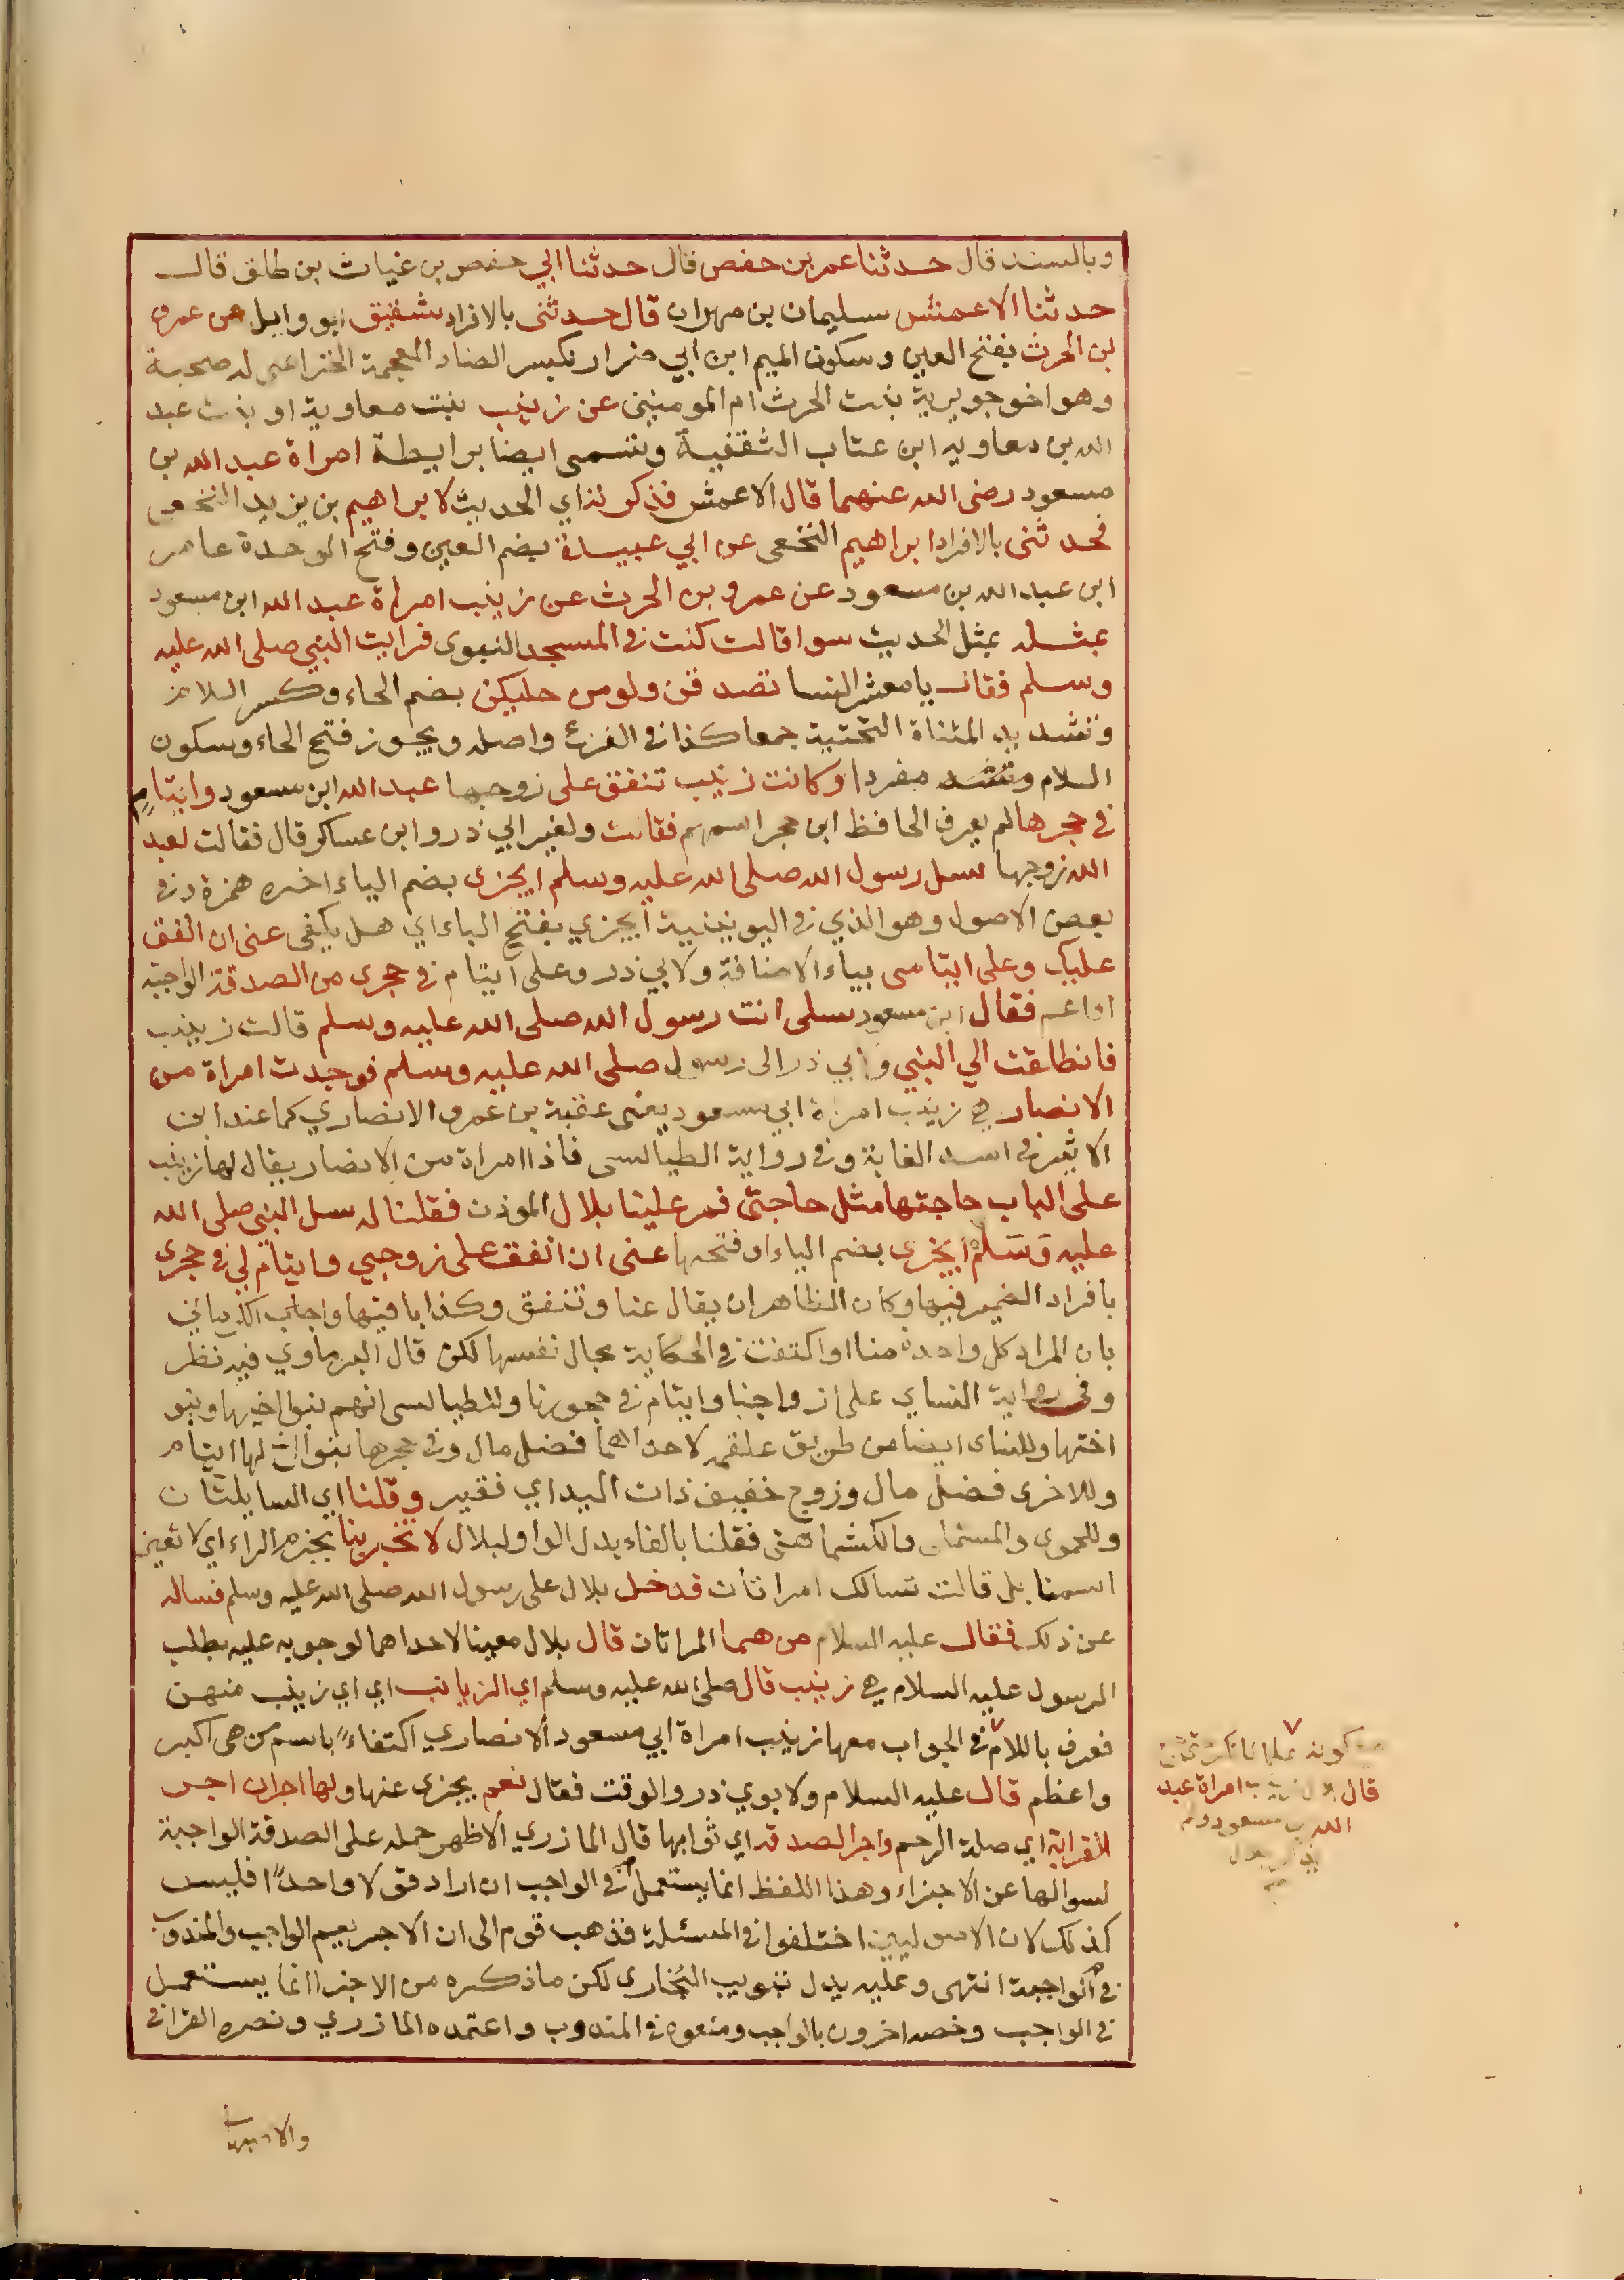 وبالسند قال حدثنا عمر بن حفص قال حدثنا ابي حفص بن غياث بن طلق قال
حدثنا الاعمش سليمان بن مهران قال حدثنى بالافراد شقيق ابو وايل عن عمرو
بن الحرث بفتح العين وسكون الميم ابن ابي ضرار بكسر الضاد المعجمة الخزاعى له صحبة
وهو اخو جويرية بنت الحرث ام المومنين عن زينب بنت معاوية او بنت عبد
الله بن معاوية ابن عتاب الثقفية وتسمى ايضا برايطة امراة عبد الله بن
مسعود رضى الله عنهما قال الاعمش فذكرته اي الحديث لابراهيم بن يزيد النخعى
فحدثنى بالافراد ابراهيم النخعى عن ابي عبيدة بضم العين وفتح الموحدة عامر
ابن عبد الله بن مسعود عن عمرو بن الحرث عن زينب امراة عبد الله ابن مسعود
بمثله بمثل الحديث سوا قالت كنت في المسجد النبوى فرايت النبي صلى الله عليه
وسلم فقال يا معشر النسا تصدقن ولو من حليكن بضم الحاء وكسر اللام
وتشديد المثناة التحتية جمعا كذا في الفرع واصله ويجوز فتح الحاء وسكون
اللام مفردا وكانت زينب تنفق على زوجها عبد الله ابن مسعود وايتام
في حجرها لم يعرف الحافظ ابن حجر اسمهم فقالت ولغير ابي ذر وابن عساكر قال فقالت لعبد
الله زوجها سل رسول الله صلى الله عليه وسلم ايجزى بضم الياء اخره همزة وفي
بعض الاصول وهو الذي في اليونينية ايجزي بفتح الياء اي هل يكفى عنى ان انفق
عليك وعلى ايتامى بياء الاضافة ولابي ذر وعلى ايتام في حجرى من الصدقة الواجبة
او اعم فقال ابن مسعود سلى انت رسول الله صلى الله عليه وسلم قالت زينب
فانطلقت الي النبي ولابي ذر الى رسول صلى الله عليه وسلم فوجدت امراة من
الانصار هي زينب امراة ابي مسعود يعنى عقبة بن عمرو الانصاري كما عند ابن
الاثير في اسد الغابة وفي رواية الطيالسى فاذا امراة من الانصار يقال لها زينب
على الباب حاجتها مثل حاجتى فمر علينا بلال الموذن فقلنا له سل النبى صلى الله
عليه وسلم ايجزى بضم الياء او فتحها عنى ان انفق على زوجي وايتام لي في حجرى
بافراد الضمير فيها وكان الظاهر ان يقال عنا وننفق وكذا باقيها واجاب الكرماني
بان المراد كل واحدة منا او اكتفت في الحكاية بحال نفسها لكن قال البرماوي فيه نظر
وفى رواية النساي على ازواجنا وايتام في حجورنا وللطيالسى انهم بنو اخيها وبنو
اختها وللنساى ايضا من طريق علقمه لاحداهما فضل مال وفي حجرها بنو اخ لها ايتام
وللاخرى فضل مال وزوج خفيف ذات اليد اي فقير وقلنا اي السايلتان
وللحموى والمستملى والكشميهنى فقلنا بالفاء بدل الواو لبلال لا تخبر بنا بجزم الراء اي لا تعين
اسمنا بل قالت تسالك امراتان فدخل بلال على رسول الله صلى الله عليه وسلم فساله
عن ذلك فقال عليه السلام من هما المراتان قال بلال معينا لاحداهما لوجوبه عليه بطلب
الرسول عليه السلام هي زينب قال صلى الله عليه وسلم اي الزيانب اي اي زينب منهن
فعرف باللام في الجواب معها زينب امراة ابي مسعود الانصاري اكتفاء باسم من هى اكبر
واعظم قال عليه السلام ولابوي ذر والوقت فقال نعم يجزى عنها ولها اجران اجر
القرابة اي صلة الرحم واجر الصدقة اي ثوابها قال المازري الاظهر حمله على الصدقة الواجبة
لسوالها عن الاجزاء وهذا اللفظ انما يستعمل في الواجب ان اراد قولا واحدا فليس
كذلك لان الاصوليين اختلفوا في المسئلة فذهب قوم الى ان الاجزء يعم الواجب والمندوب
في الواجبة انتهى وعليه يدل تبويب البخارى لكن ما ذكره من الاجزا انما يستعمل
في الواجب وخصه اخرون بالواجب ومنعوه في المندوب واعتمده المازري ونصره القرافي
قال امراة عبد
الله بن مسعود ولم